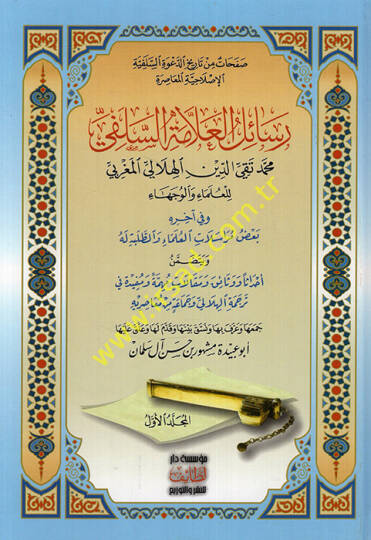 صفحات من تاريخ الدعوة السلفية
الإصلاحية المعاصرة
رسائل العلامة السلفي
محمد تقي الدين الهلالي المغربي
للعلماء والوجهاء
وفي آخره
بعض مراسلات العلماء والطلبة له
ويتضمن
أحداثًا ووثائق ومقالات مهمة ومفيدة في
ترجمة الهلالي وجماعة من معاصريه
جمعها وعرف بها ونسق بينها وقدم لها وعلق عليها
أبو عبيدة مشهور بن حسن آل سلمان
المجلد الأول
مؤسسة دار
لطائف
للنشر والتوزيع